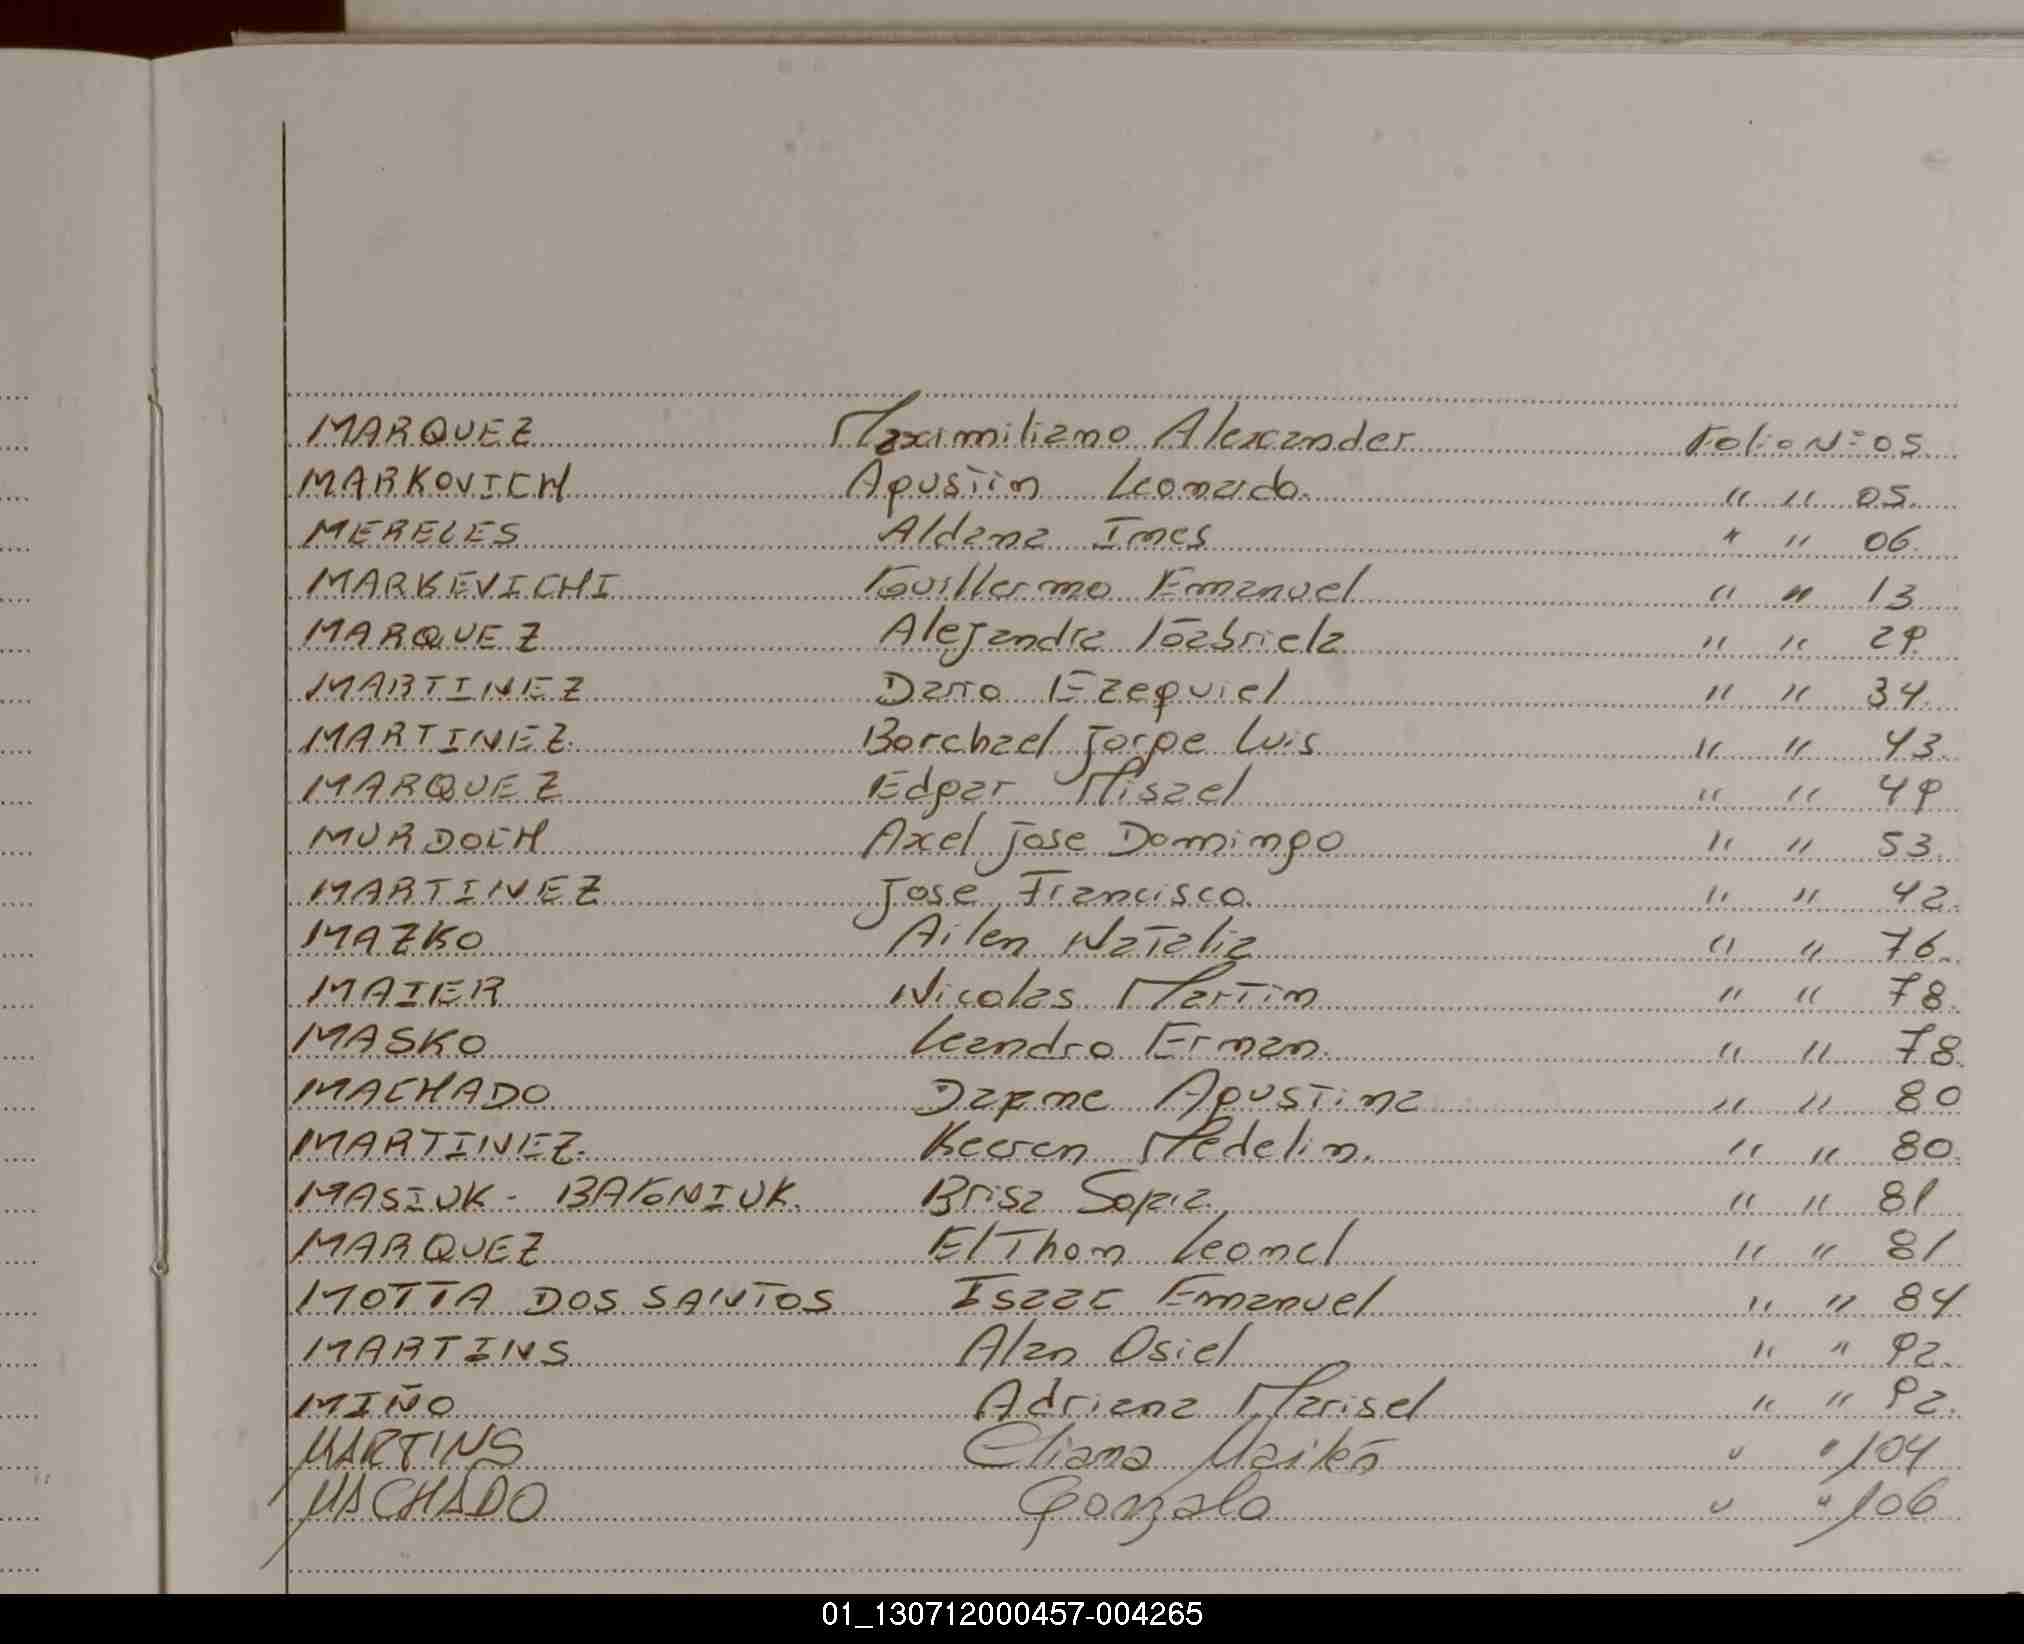 MARQUEZ Maximiliano Alexander Folio Nº 05
MARKOVICH Agustin Leonardo. " " 05.
MERELES Aldana Ines " " 06.
MARKEVICHI Guillermo Emanuel " " 13
MARQUEZ Alejandra Gabriela " " 29
MARTINEZ Dario Ezequiel " " 34.
MARTINEZ. Borchael Jorge Luis " " 43.
MARQUEZ Edgar Misael " " 49
MURDOCH Axel Jose Domingo " " 53.
MARTINEZ Jose Francisco. " " 42.
MAZKO Ailen Natalia " " 76.
MAIER Nicolas Martin " " 78.
MASKO Leandro Erman. " " 78.
MACHADO Dafne Agustina " " 80
MARTINEZ. Keeren Medelin. " " 80.
MASIUK - BAGONIUK. Brisa Sofia. " " 81
MARQUEZ ElThon Leonel " " 81
MOTTA DOS SANTOS Isaac Emanuel " " 84
MARTINS Alan Osiel " " 92.
MIÑO Adriana Marisel " " 92.
MARTINS Eliana " " 104
MACHADO Gonzalo " " 106
01_130712000457-004265